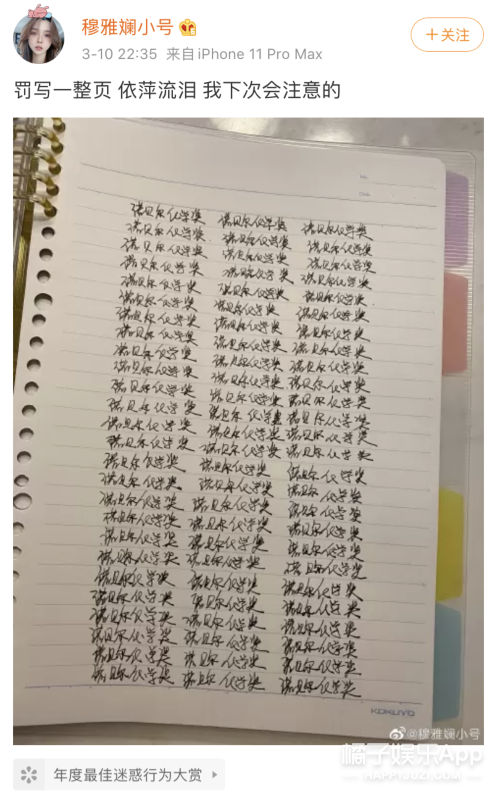 穆雅斓小号
3-10 22:35 来自 iPhone 11 Pro Max
+关注
罚写一整页 依萍流泪 我下次会注意的
No.
Date
诺贝尔化学奖 诺贝尔化学奖 诺贝尔化学奖
诺贝尔化学奖 诺贝尔化学奖 诺贝尔化学奖
诺贝尔化学奖 诺贝尔化学奖 诺贝尔化学奖
诺贝尔化学奖 诺贝尔化学奖 诺贝尔化学奖
诺贝尔化学奖 诺贝尔化学奖 诺贝尔化学奖
诺贝尔化学奖 诺贝尔化学奖 诺贝尔化学奖
诺贝尔化学奖 诺贝尔化学奖 诺贝尔化学奖
诺贝尔化学奖 诺贝尔化学奖 诺贝尔化学奖
诺贝尔化学奖 诺贝尔化学奖 诺贝尔化学奖
诺贝尔化学奖 诺贝尔化学奖 诺贝尔化学奖
诺贝尔化学奖 诺贝尔化学奖 诺贝尔化学奖
诺贝尔化学奖 诺贝尔化学奖 诺贝尔化学奖
诺贝尔化学奖 诺贝尔化学奖 诺贝尔化学奖
诺贝尔化学奖 诺贝尔化学奖 诺贝尔化学奖
诺贝尔化学奖 诺贝尔化学奖 诺贝尔化学奖
诺贝尔化学奖 诺贝尔化学奖 诺贝尔化学奖
诺贝尔化学奖 诺贝尔化学奖 诺贝尔化学奖
诺贝尔化学奖 诺贝尔化学奖 诺贝尔化学奖
诺贝尔化学奖 诺贝尔化学奖 诺贝尔化学奖
诺贝尔化学奖 诺贝尔化学奖 诺贝尔化学奖
诺贝尔化学奖 诺贝尔化学奖 诺贝尔化学奖
诺贝尔化学奖 诺贝尔化学奖 诺贝尔化学奖
诺贝尔化学奖 诺贝尔化学奖 诺贝尔化学奖
诺贝尔化学奖 诺贝尔化学奖 诺贝尔化学奖
诺贝尔化学奖 诺贝尔化学奖 诺贝尔化学奖
诺贝尔化学奖 诺贝尔化学奖 诺贝尔化学奖
KOKUYO
@穆雅斓小号
橘子娱乐App
HAPPYJUZI.COM
年度最佳迷惑行为大赏